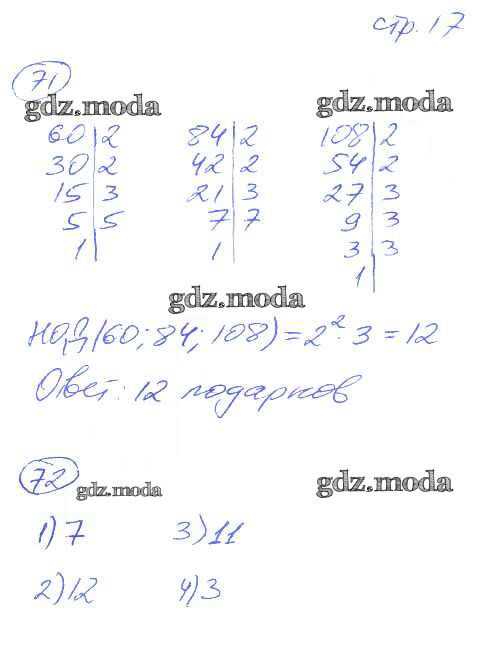 стр. 17
71
gdz.moda gdz.moda
60|2 84|2 108|2
30|2 42|2 54|2
15|3 21|3 27|3
5|5 7|7 9|3
1| 1| 3|3
1|
gdz.moda
НОД(60; 84; 108) = 2²·3 = 12
Ответ: 12 подарков
72
gdz.moda gdz.moda
1) 7 3) 11
2) 12 4) 3